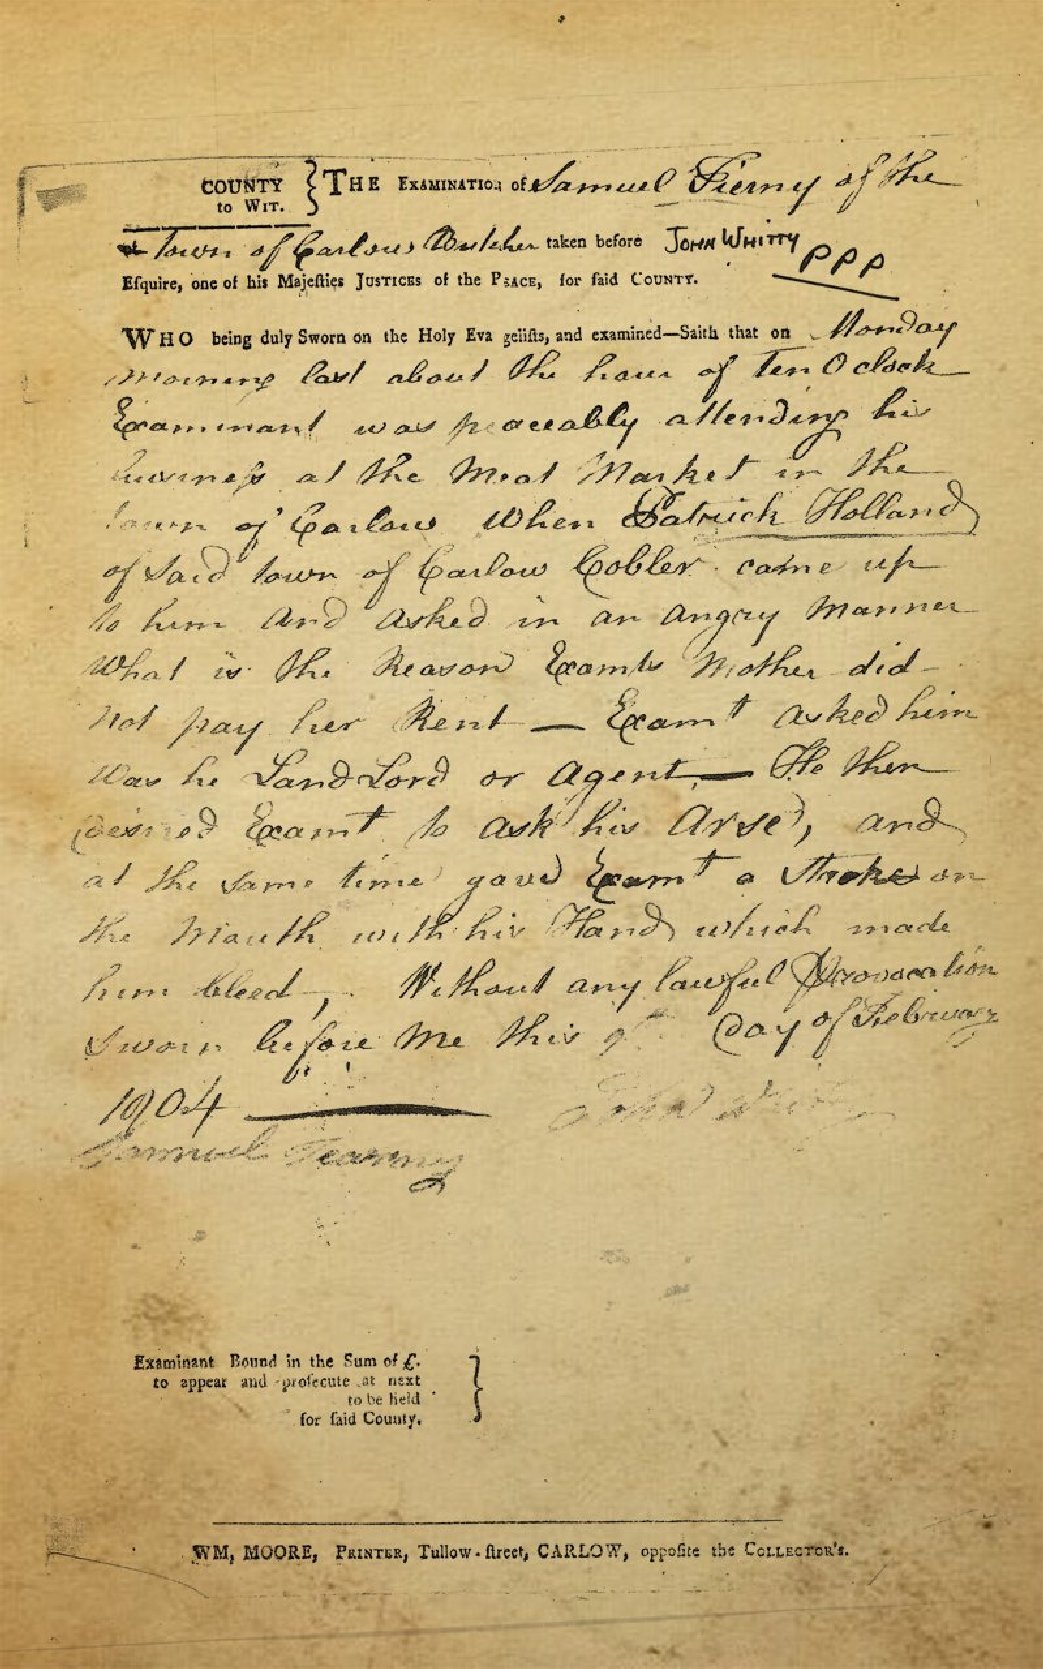 COUNTY
to WIT.
THE EXAMINATION of Samuel Tierny of the
Town of Carlow Butcher taken before JOHN WHITTY
PPP
Eſquire, one of his Majeſties JUSTICES of the PEACE, for ſaid COUNTY.
WHO being duly Sworn on the Holy Eva geliſts, and examined—Saith that on Monday
morning last about the hour of Ten O clock
Examinant was peaceably attending his
business at the Meat Market in the
town of Carlow When Patrick Holland
of Said town of Carlow Cobler came up
to him and asked in an angry Manner
What is the Reason Examts Mother did
not pay her Rent — Examt asked him
Was he Land Lord or Agent — He then
desired Examt to ask his Arse, and
at the same time gave Examt a Stroke on
the Mouth with his Hand which made
him bleed, Without any lawful Provocation
Sworn before Me this 9th Day of February
1904
John
Samuel Tearney
Examinant Bound in the Sum of £.
to appear and proſecute at next
to be held
for ſaid County.
WM, MOORE, PRINTER, Tullow-ſtreet, CARLOW, oppoſite the COLLECTOR's.